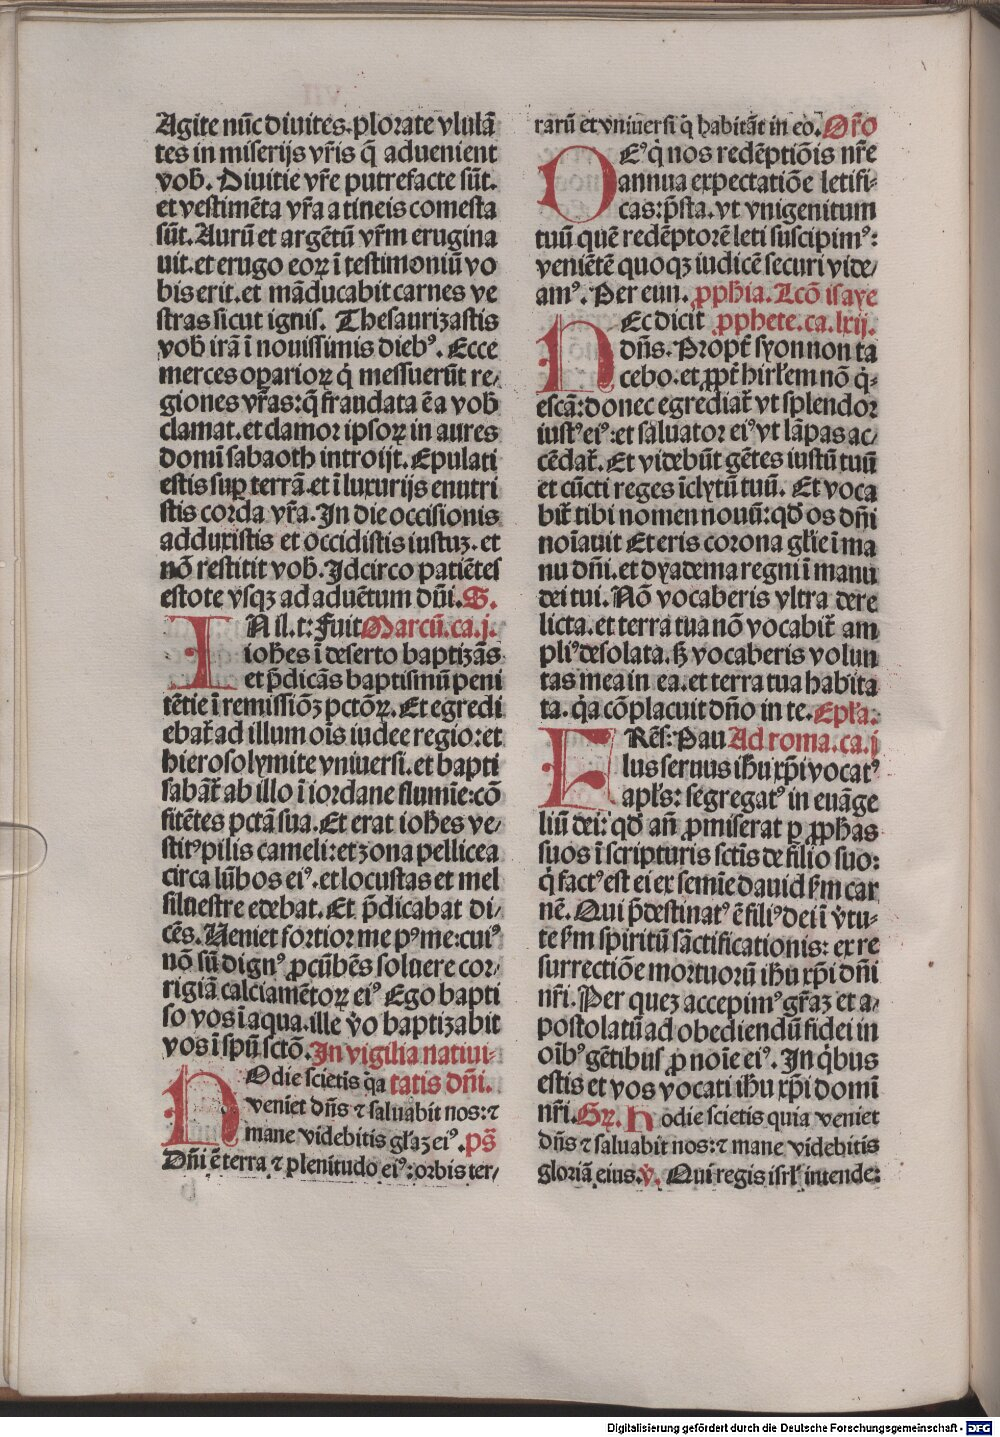 Agite nũc diuites.plorate vlulã
tes in miserijs vr̃is q̃ aduenient
vob̃. Diuitie vr̃e putrefacte sũt.
et vestimẽta vr̃a a tineis comesta
sũt. Aurũ et argẽtũ vr̃m erugina
uit.et erugo eoꝝ ĩ testimoniũ vo
bis erit.et mãducabit carnes ve
stras sicut ignis. Thesaurizastis
vob̃ irã ĩ nouissimis diebꝰ. Ecce
merces oꝑarioꝝ q̇ messuerũt re/
giones vr̃as:q̃ fraudata ẽ a vob̃
clamat.et clamor ipsoꝝ in aures
domĩ sabaoth introijt. Epulati
estis suꝑ terrã.et ĩ luxurijs enutri
stis corda vr̃a. In die occisionis
adduxistis et occidistis iustuz.et
nõ restitit vob̃. Idcirco patiẽtes
estote vsqꝫ ad aduẽtum dñi. S.
IN il.t: Fuit Marcũ.ca.j.
ioh̃es ĩ deserto baptizãs
et p̃dicãs baptismũ peni
tẽtie ĩ remissiõꝫ pctõꝝ. Et egredi
ebat̃ ad illum oĩs iudee regio:et
hierosolymite vniuersi.et bapti
sabãt̃ ab illo ĩ iordane flumĩe:cõ
fitẽtes pctã sua. Et erat ioh̃es ve/
stitꝰ pilis cameli:et zona pellicea
circa lũbos eiꝰ.et locustas et mel
siluestre edebat. Et p̃dicabat di/
cẽs. Veniet fortior me pꝰ me:cuiꝰ
nõ sũ dignꝰ ꝓcũbẽs soluere cor/
rigiã calciamẽtoꝝ eiꝰ Ego bapti
so vos ĩ aqua.ille v̇o baptizabit
vos ĩ spũ sctõ. In vigilia natiui-
HOdie scietis q̇a tatis dñi.
veniet dñs ⁊ saluabit nos:⁊
mane videbitis gl̃aꝫ eiꝰ. ps̃
Dñi ẽ terra ⁊ plenitudo eiꝰ:orbis ter/
rarũ et vniuersi q̇ habitãt in eo. Or̃o
DEꝰ q̇ nos redẽptiõis nr̃e
annua expectatiõe letifi-
cas:p̃sta.vt vnigenitum
tuũ quẽ redẽptorẽ leti suscipimꝰ:
veniẽtẽ quoqꝫ iudicẽ securi vide/
amꝰ. Per eun. ꝓph̃ia. Lcõ isaye
HEc dicit ꝓphete.ca.lxij.
dñs. Propt̃ syon non ta
cebo.et ꝓpt̃ hirl̃em nõ q̇-
escã:donec egrediat̃ vt splendor
iustꝰ eiꝰ:et saluator eiꝰ vt lãpas ac/
cẽdat̃. Et videbũt gẽtes iustũ tuũ
et cũcti reges ĩclytũ tuũ. Et voca
bit̃ tibi nomen nouũ:qd̃ os dñi
noĩauit Et eris corona gl̃ie ĩ ma
nu dñi.et dyadema regni ĩ manu
dei tui. Nõ vocaberis vltra dere
licta.et terra tua nõ vocabit̃ am
pliꝰ desolata.sꝫ vocaberis volun
tas mea in ea.et terra tua habita
ta.q̇a cõplacuit dño in te. Epl̃a.
FRẽs: Pau Ad roma.ca.j
lus seruus ih̃u xp̃i vocatꝰ
apl̃s: segregatꝰ in euãge
liũ dei: qd̃ añ ꝓmiserat ꝑ ꝓph̃as
suos ĩ scripturis sctĩs de filio suo:
q̇ factꝰ est ei ex semĩe dauid sm̃ car
nẽ. Qui p̃destinatꝰ ẽ filiꝰ dei ĩ v̇tu-
te sm̃ spiritũ sãctificationis: ex re
surrectiõe mortuorũ ih̃u xp̃i dñi
nr̃i. Per quez accepimꝰ gr̃aꝫ et a/
postolatũ ad obediendũ fidei in
oĩbꝰ gẽtibus ꝓ noĩe eiꝰ. In q̇bus
estis et vos vocati ih̃u xp̃i domĩ
nr̃i. Gꝝ. Hodie scietis quia veniet
dñs ⁊ saluabit nos:⁊ mane videbitis
gloriã eius. v̇. Qui regis isrl̃ intende:
Digitalisierung gefördert durch die Deutsche Forschungsgemeinschaft - DFG